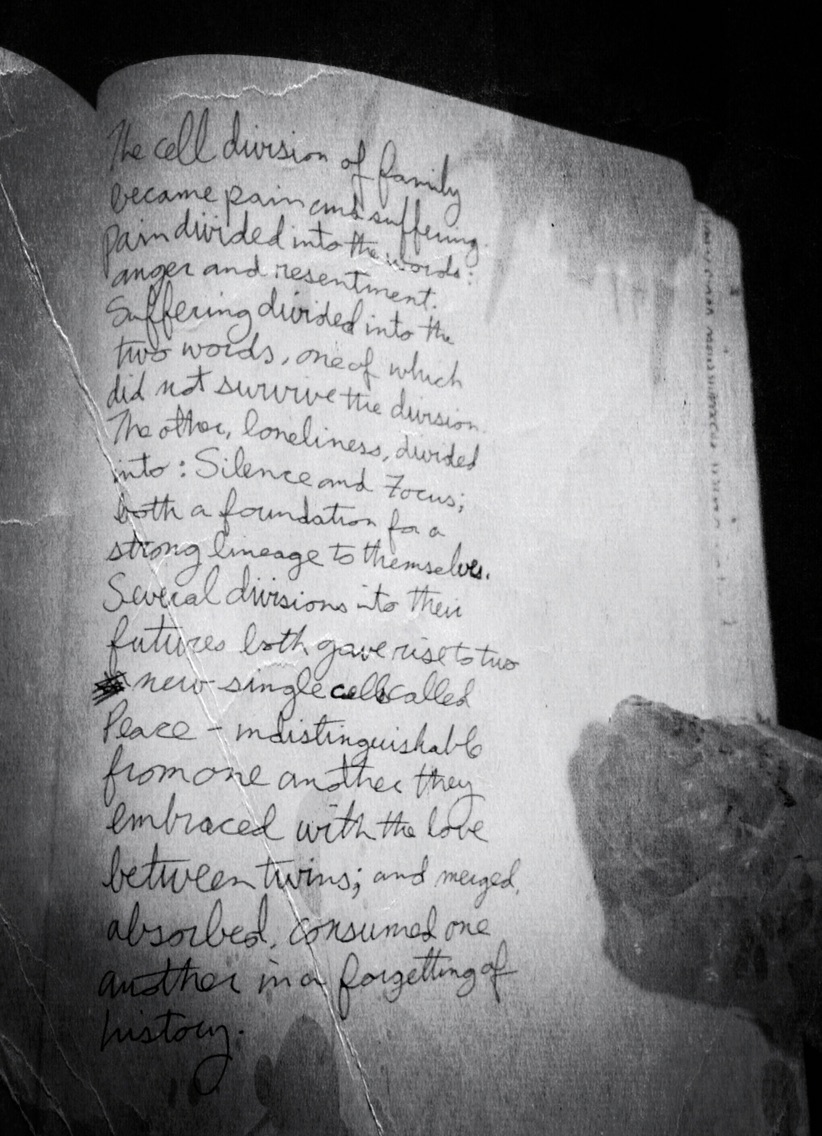 The cell division of family
became pain and suffering.
Pain divided into the words:
anger and resentment.
Suffering divided into the
two words, one of which
did not survive the division.
The other, loneliness, divided
into: Silence and Focus;
both a foundation for a
strong lineage to themselves.
Several divisions into their
futures both gave rise to two
new single cells called
Peace - indistinguishable
from one another they
embraced with the love
between twins; and merged,
absorbed, consumed one
another in a forgetting of
history.